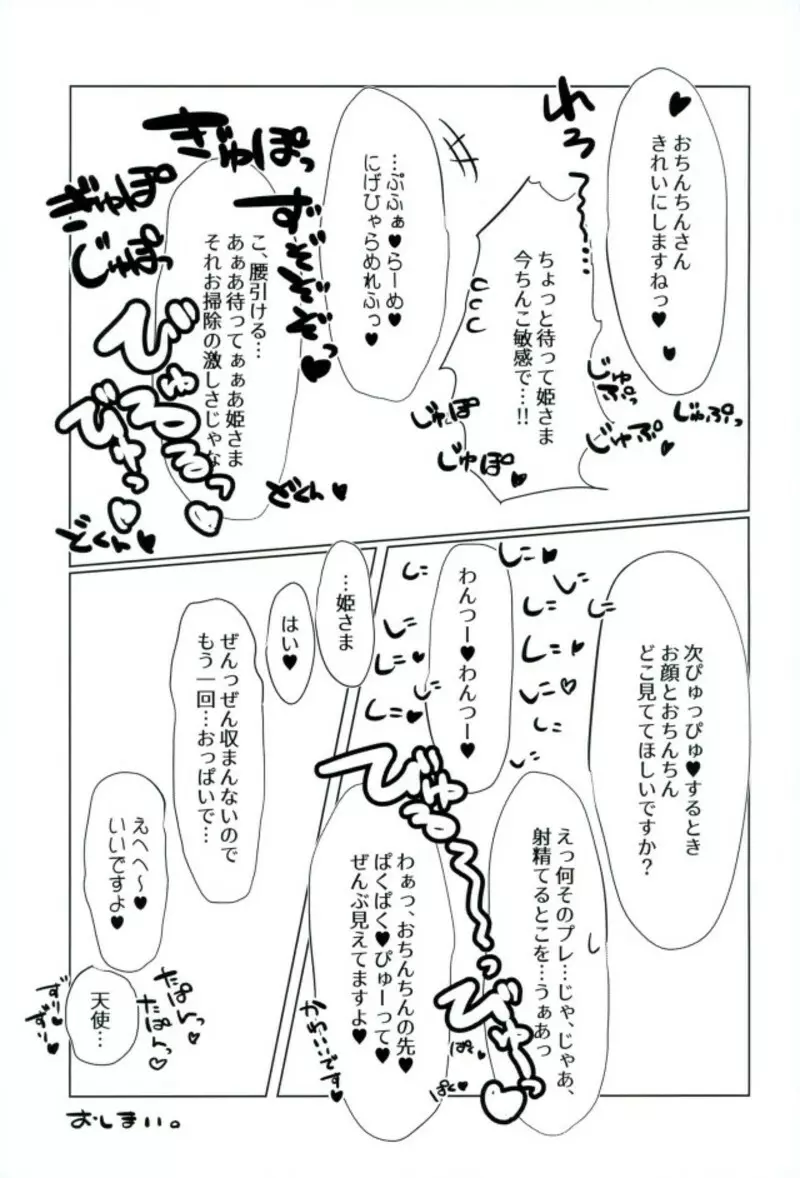 おちんちんさん
きれいにしますねっ♥
れろ
ちょっと待って姫さま
今ちんこ敏感で…!!
じゅぷっ
じゅぷっ
じゅぷ
じゅぽ
じゅぽ
…ぷふぁ♥らーめ♥
にげひゃらめれふっ♥
ずぞぞぞっ♥
ぎゅぽっ
こ、腰引ける…
あぁあ待ってぁぁあ姫さま
それお掃除の激しさじゃな
どくん♥
どくん♥
次ぴゅっぴゅ♥するとき
お顔とおちんちん
どこ見ててほしいですか?
えっ何そのプレ…じゃ、じゃあ、
射精てるとこを…うぁあっ
わんつー♥わんつー♥
しこ
しこ
しこ
しこ
しこ
しこ
しこ
しこ♥
わぁっ、おちんちんの先♥
ぱくぱく♥ぴゅーって♥
ぜんぶ見えてますよ♥
かわいいです♥
ぱく♥
…姫さま
はい♥
ぜんっぜん収まんないので
もう一回…おっぱいで…
えへへ〜♥
いいですよ♥
たぱんっ
たぱんっ
天使…
ずり♥
ずり♥
おしまい。